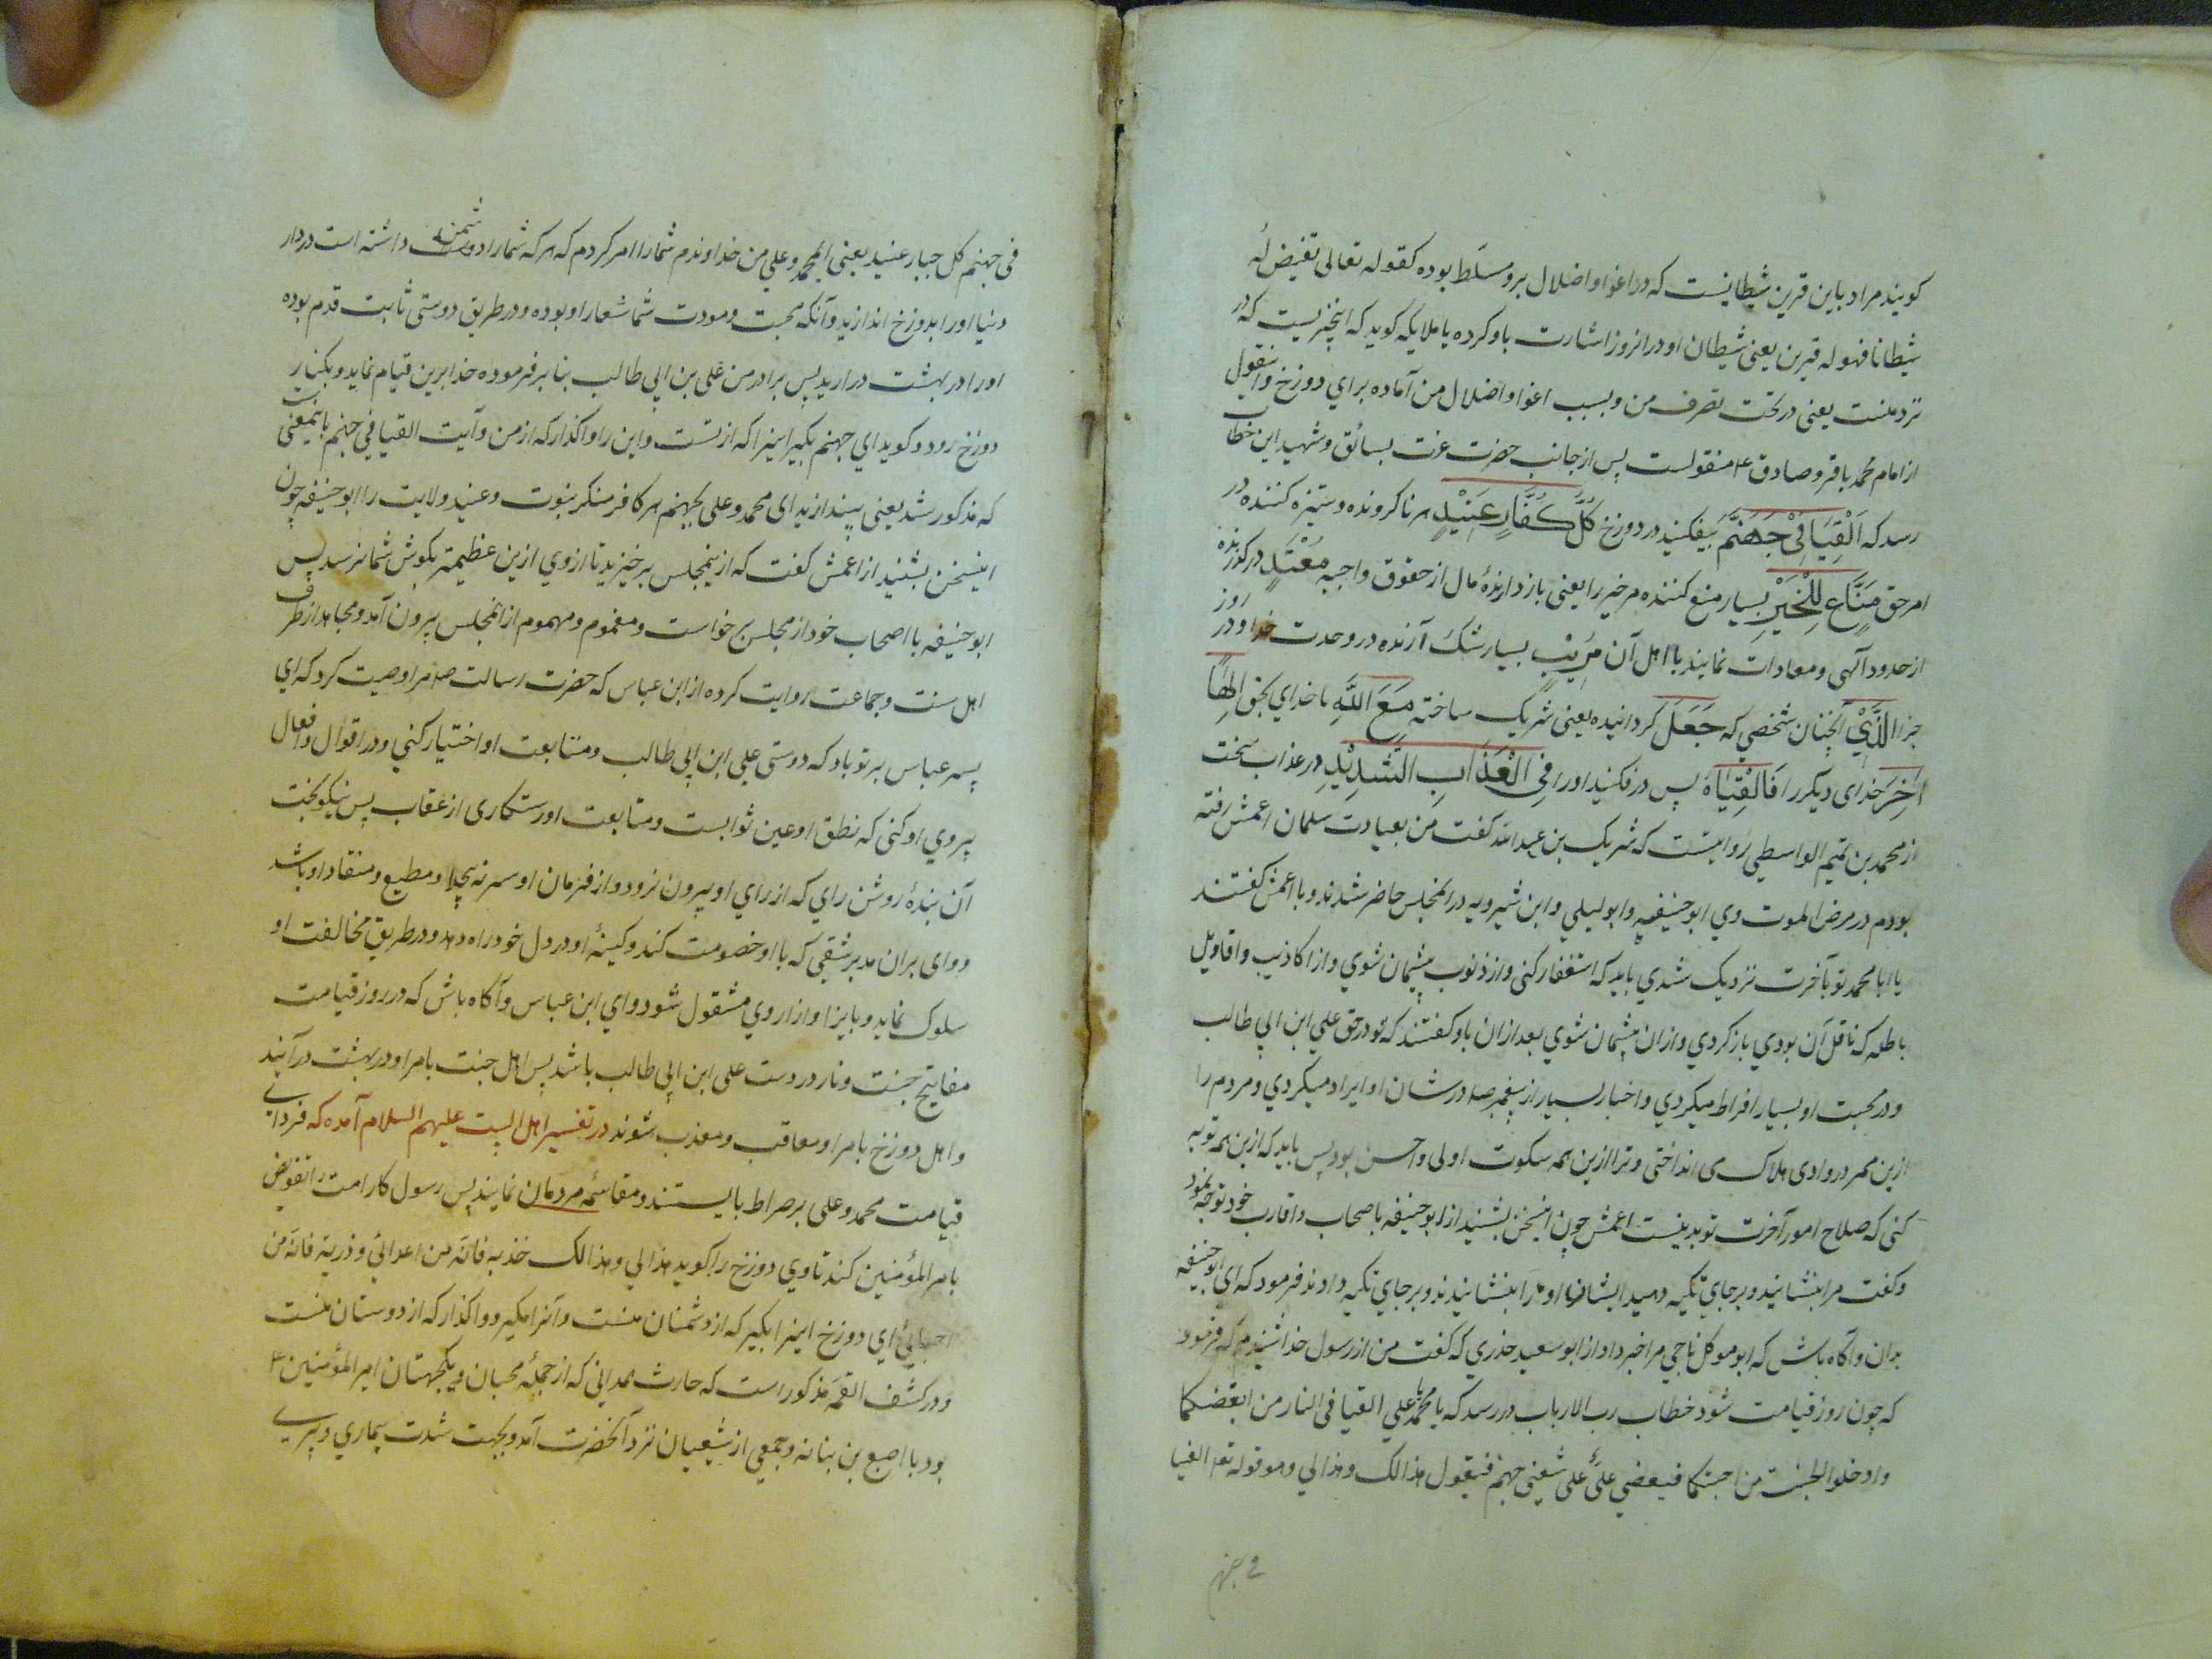 کویند مراد باین قرین شیطانیست که در اغوا و اضلال برو مسلط بوده کقوله تعالی نقیض له
شیطانا فهو له قرین یعنی شیطان او در انروز اشارت باو کرده با ملایکه کوید که اینچیزیست که در
نزد منست یعنی در تحت تصرف من و بسبب اغوا و اضلال من آماده برای دوزخ و اینقول
از امام محمد باقر و صادق ع منقولست پس از جانب حضرت عزت بسائق و شهید این خطاب
رسد که اَلْقِیَا فِیْ جَهَنَّمَ بیفکنید در دوزخ کُلَّ کَفَّارٍ عَنِیْدٍ هر ناکرونده و ستیزه کننده در
امر حق مَنَّاعٍ لِلْخَیْرِ بسیار منع کننده مر خیر را یعنی باز دارندهٔ مال از حقوق واجبه مُعْتَدٍ درکذرنده
از حدود آلهی و معادات نمایند با اهل آن مُرِیْبٍ بسیار شک آرنده در وحدت خدا و در روز
جزا الَّذِیْ آنچنان شخصی که جَعَلَ کردانیده یعنی شریک ساخته مَعَ اللَّهِ با خدای بحق اِلٰهًا
اٰخَرَ خدای دیکر را فَالْقِیَاهُ پس در فکنید او را فِی الْعَذَابِ الشَّدِیْدِ در عذاب سخت
از محمد بن تمیم الواسطی روایتست که شریک بن عبد الله کفت من بعیادت سلمان اعمش رفته
بودم در مرض الموت وی ابو حنیفه و ابو لیلی و ابن شبرویه در انمجلس حاضر شدند و با اعمش کفتند
یا ابا محمد تو بآخرت نزدیک شدی باید که استغفار کنی و از ذنوب پشیمان شوی و از اکاذیب و اقاویل
باطله که ناقل آن بودی باز کردی و ازان پشیمان شوی بعد ازان باو کفتند که تو در حق علی ابن ابی طالب
و در محبت او بسیار افراط میکردی و اخبار بسیار از پیغمبر ص در شان او ایراد میکردی و مردم را
ازین ممر در وادی هلاک می انداختی و ترا ازین همه سکوت اولی و احسن بود پس باید که ازین همه توبه
کنی که صلاح امور آخرت تو بدینست اعمش چون اینسخن بشنید از ابو حنیفه باصحاب و اقارب خود توجه نمود
و کفت مرا بنشانید و بر جای تکیه دهید ایشان او را بنشانیدند و بر جای تکیه دادند فرمود که ای ابو حنیفه
بدان و آکاه باش که ابو موکل ناجی مرا خبر داد از ابو سعید خدری که کفت من از رسول خدا شنیدم که فرمود
که چون روز قیامت شود خطاب رب الارباب در رسد که یا محمد یا علی القیا فی النار من ابغضکما
و ادخلوا الجنت من احبکما فیمضی علی علی شفیر جهنم فیقول هذا لک و هذا لی و هو قوله تع القیا
فی جهنم
فی جهنم کل جبار عنید یعنی ای محمد و علی من خداوندم شما را امر کردم که هر که شما را دشمن داشته است در دار
دنیا او را بدوزخ اندازید و آنکه محبت و مودت شما شعار او بوده و در طریق دوستی ثابت قدم بوده
او را در بهشت در ارید پس برادر من علی بن ابی طالب بنا بر فرموده خدا برین قیام نماید و بکنار
دوزخ رود و کوید ای جهنم بکیر اینرا که از تست و این را واکذار که از من و آیت القیا فی جهنم باینمعنی
که مذکور شد یعنی بیندازید ای محمد و علی بجهنم هر کافر منکر نبوت و عنید ولایت را ابو حنیفه چون
اینسخن بشنید از اعمش کفت که ازینمجلس برخیزید تا از وی ازین عظیمتر بکوش شما نرسد پس
ابو حنیفه با اصحاب خود از مجلس برخواست و مغموم و مهموم از انمجلس بیرون آمد و مجاهد از طرف
اهل سنت و جماعت روایت کرده از ابن عباس که حضرت رسالت ص مرا وصیت کرد که ای
پسر عباس بر تو باد که دوستی علی ابن ابی طالب و متابعت او اختیار کنی و در اقوال و افعال
پیروی او کنی که نطق او عین ثوابست و متابعت او رستکاری از عقاب پس نیکوبخت
آن بندهٔ روشن رای که از رای او بیرون نرود و از فرمان او سر نه پیچد و مطیع و منقاد او باشد
و وای بران مدبر شقی که با او خصومت کند و کینهٔ او در دل خود راه دهد و در طریق مخالفت او
سلوک نماید و بایذا و ازار وی مشغول شود و ای ابن عباس و آکاه باش که در روز قیامت
مفاتیح جنت و نار در دست علی ابن ابی طالب باشد پس اهل جنت بامر او در بهشت در آیند
و اهل دوزخ بامر او معاقب و معذب شوند در تفسیر اهل البیت علیهم السلام آمده که فردای
قیامت محمد و علی بر صراط بایستند و مقاسمه مردمان نمایند پس رسول کار امت را تفویض
بامیر المؤمنین کند تا وی دوزخ را کوید هذا لی و هذا لک خذیه فانه من اعدائی و ذریه فانه من
احبائی ای دوزخ اینرا بکیر که از دشمنان منست و آنرا مکیر و واکذار که از دوستان منست
و در کشف الغمه مذکور است که حارث همدانی که از جملهٔ محبان و یکجهتان امیر المؤمنین ع
بود با اصبغ بن نباته و جمعی از شیعیان نزد آنحضرت آمد و بجهت شدت بیماری و پیری